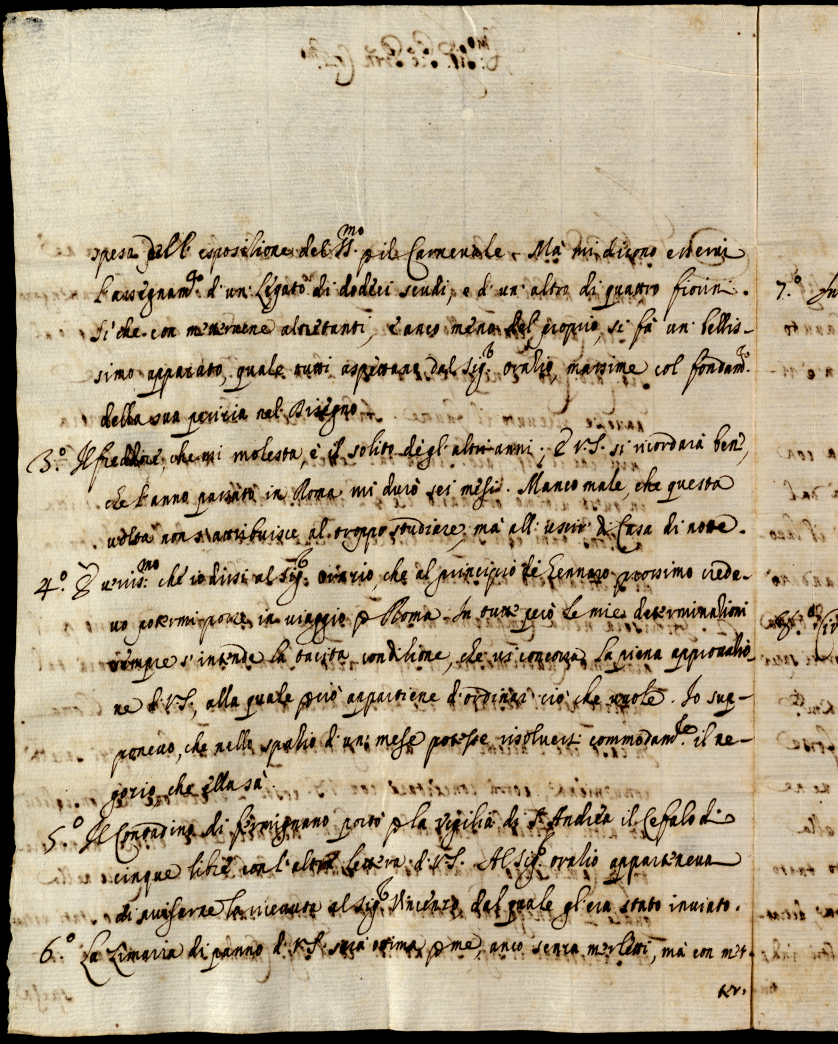 spesa dell' esposizione del SS.mo p il Carnevale. Mà mi dicono esservi
l'assegnam.to d'un Legato di dodici scudi, e d'un altro di quattro fiorini.
Si che con metterne altretanti, e anco meno del proprio, si fà un bellis-
simo apparato, quale tutti aspettano dal Sig.r Oratio, massime col fondam.to
della sua perizia nel Disegno.
3.o Il freddore, che mi molesta, è il solito degl'altri anni; E V.S. si ricordarà ben,
che l'anno passato in Roma mi durò sei mesi. Manco male, che questa
volta non s'attribuisce al troppo studiare, mà all'uscir di Casa di notte.
4.o È veriss.mo che io dissi al Sig.r Oratio, che al principio di Gennaro prossimo crede-
vo potermi porre in viaggio p Roma. In tutte però le mie determinationi
sempre s'intende la tacita conditione, che vi concorra la piena approvatio-
ne di V.S., alla quale però appartiene d'ordinar ciò che vuole. Io sup-
ponevo, che nello spatio d'un mese potesse risolversi commodam.te il ne-
gozio che ella sà.
5.o Il Contadino di Fermignano portò p la vigilia di S. Andrea il Cefalo di
cinque libre con l'altra lettera di V.S. Al Sig.r Oratio apparteneva
di avvisarne la ricevuta al Sig.r Vincenzo, dal quale gl'era stato inviato.
6.o La Zimarra di panno di V.S. sarà ottima p me, anco senza merletti, mà con met-
7.o
8.o